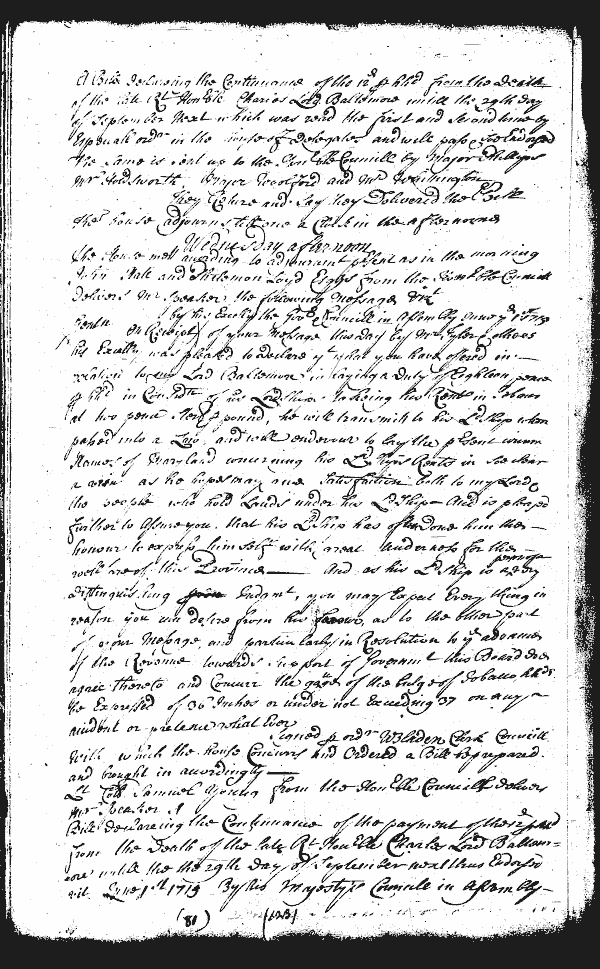 A Bill declaring the Continuance of the 12d p hhd from the Death
of the late Rt Honble Charles Lord Baltemore untill the 29th day
of September Next which was read the first and Second time by
Especiall ordr in the house of Delegates and will pass So Endorsed
The Same is Sent up to the Honble Councill by Major Phillips
Mr Holdsworth Major Woolford and Mr
They Return and Say they Delivered the Bill
The house adjourns till one a Clock in the afternoone
Wednesday afternoon
The House mett according to adjournmt pSent as in the morning
John Hall and Philemon Loyd Esqrs from the Honble Councill
delivers Mr Speaker the following Message Vizt
by his Excelly the Govr & Councill in Assembly June ye 1st 1715
Gentn On Receipt of your Message this Day by Mr Tyler & others
his Excelly was pleased to declare yt what you have offered in
relation to my Lord Baltemore in laying a Duty of Eighteen pence
p hhd in Considn of his Lordships Receiving his Rents in Tobacco
at two pence Sterl p pound, he will transmitt to his Ldship when
passed into a Law, and will endeavour to lay the pSent
of Maryland concerning his Ldships Rents in
as he hopes may give Satisfaction both to my Lord &
the people who hold Lands under his Ldship And is pleased
further to assure you, that his Ldship has often done him the
honour to express himself with great tenderness for the
welfare of this Province And as his Ldship is a very
distinguishing Judgmt, you may Expect Every thing in
reason you can desire from his favour, as to the other part
of your Message, and particularly in Resolution to ye advance
of the Revenue towards Support of Governmt this Board doe
agree thereto and Concurr the of the bulge of Tobacco hhds
be Expressed of 36 Inches or under not Exceeding 37 on any
accident or pretence whatever
Signed p ordr W Bladen Clerk Councill
With which the House Concurrs and Ordered a Bill be prepared
and brought in accordingly
Lt Coll Samuel Young from the Honble Councill delivers
Mr Speaker A
Bill declareing the Continuance of the payment of the 12d p hhd
from the Death of the late Rt Honble Charles Lord Baltem=
ore untill the 29th day of September next thus Endorsed
vizt June 1st 1715 By his Majestys Councill in Assembly
(81) (123)